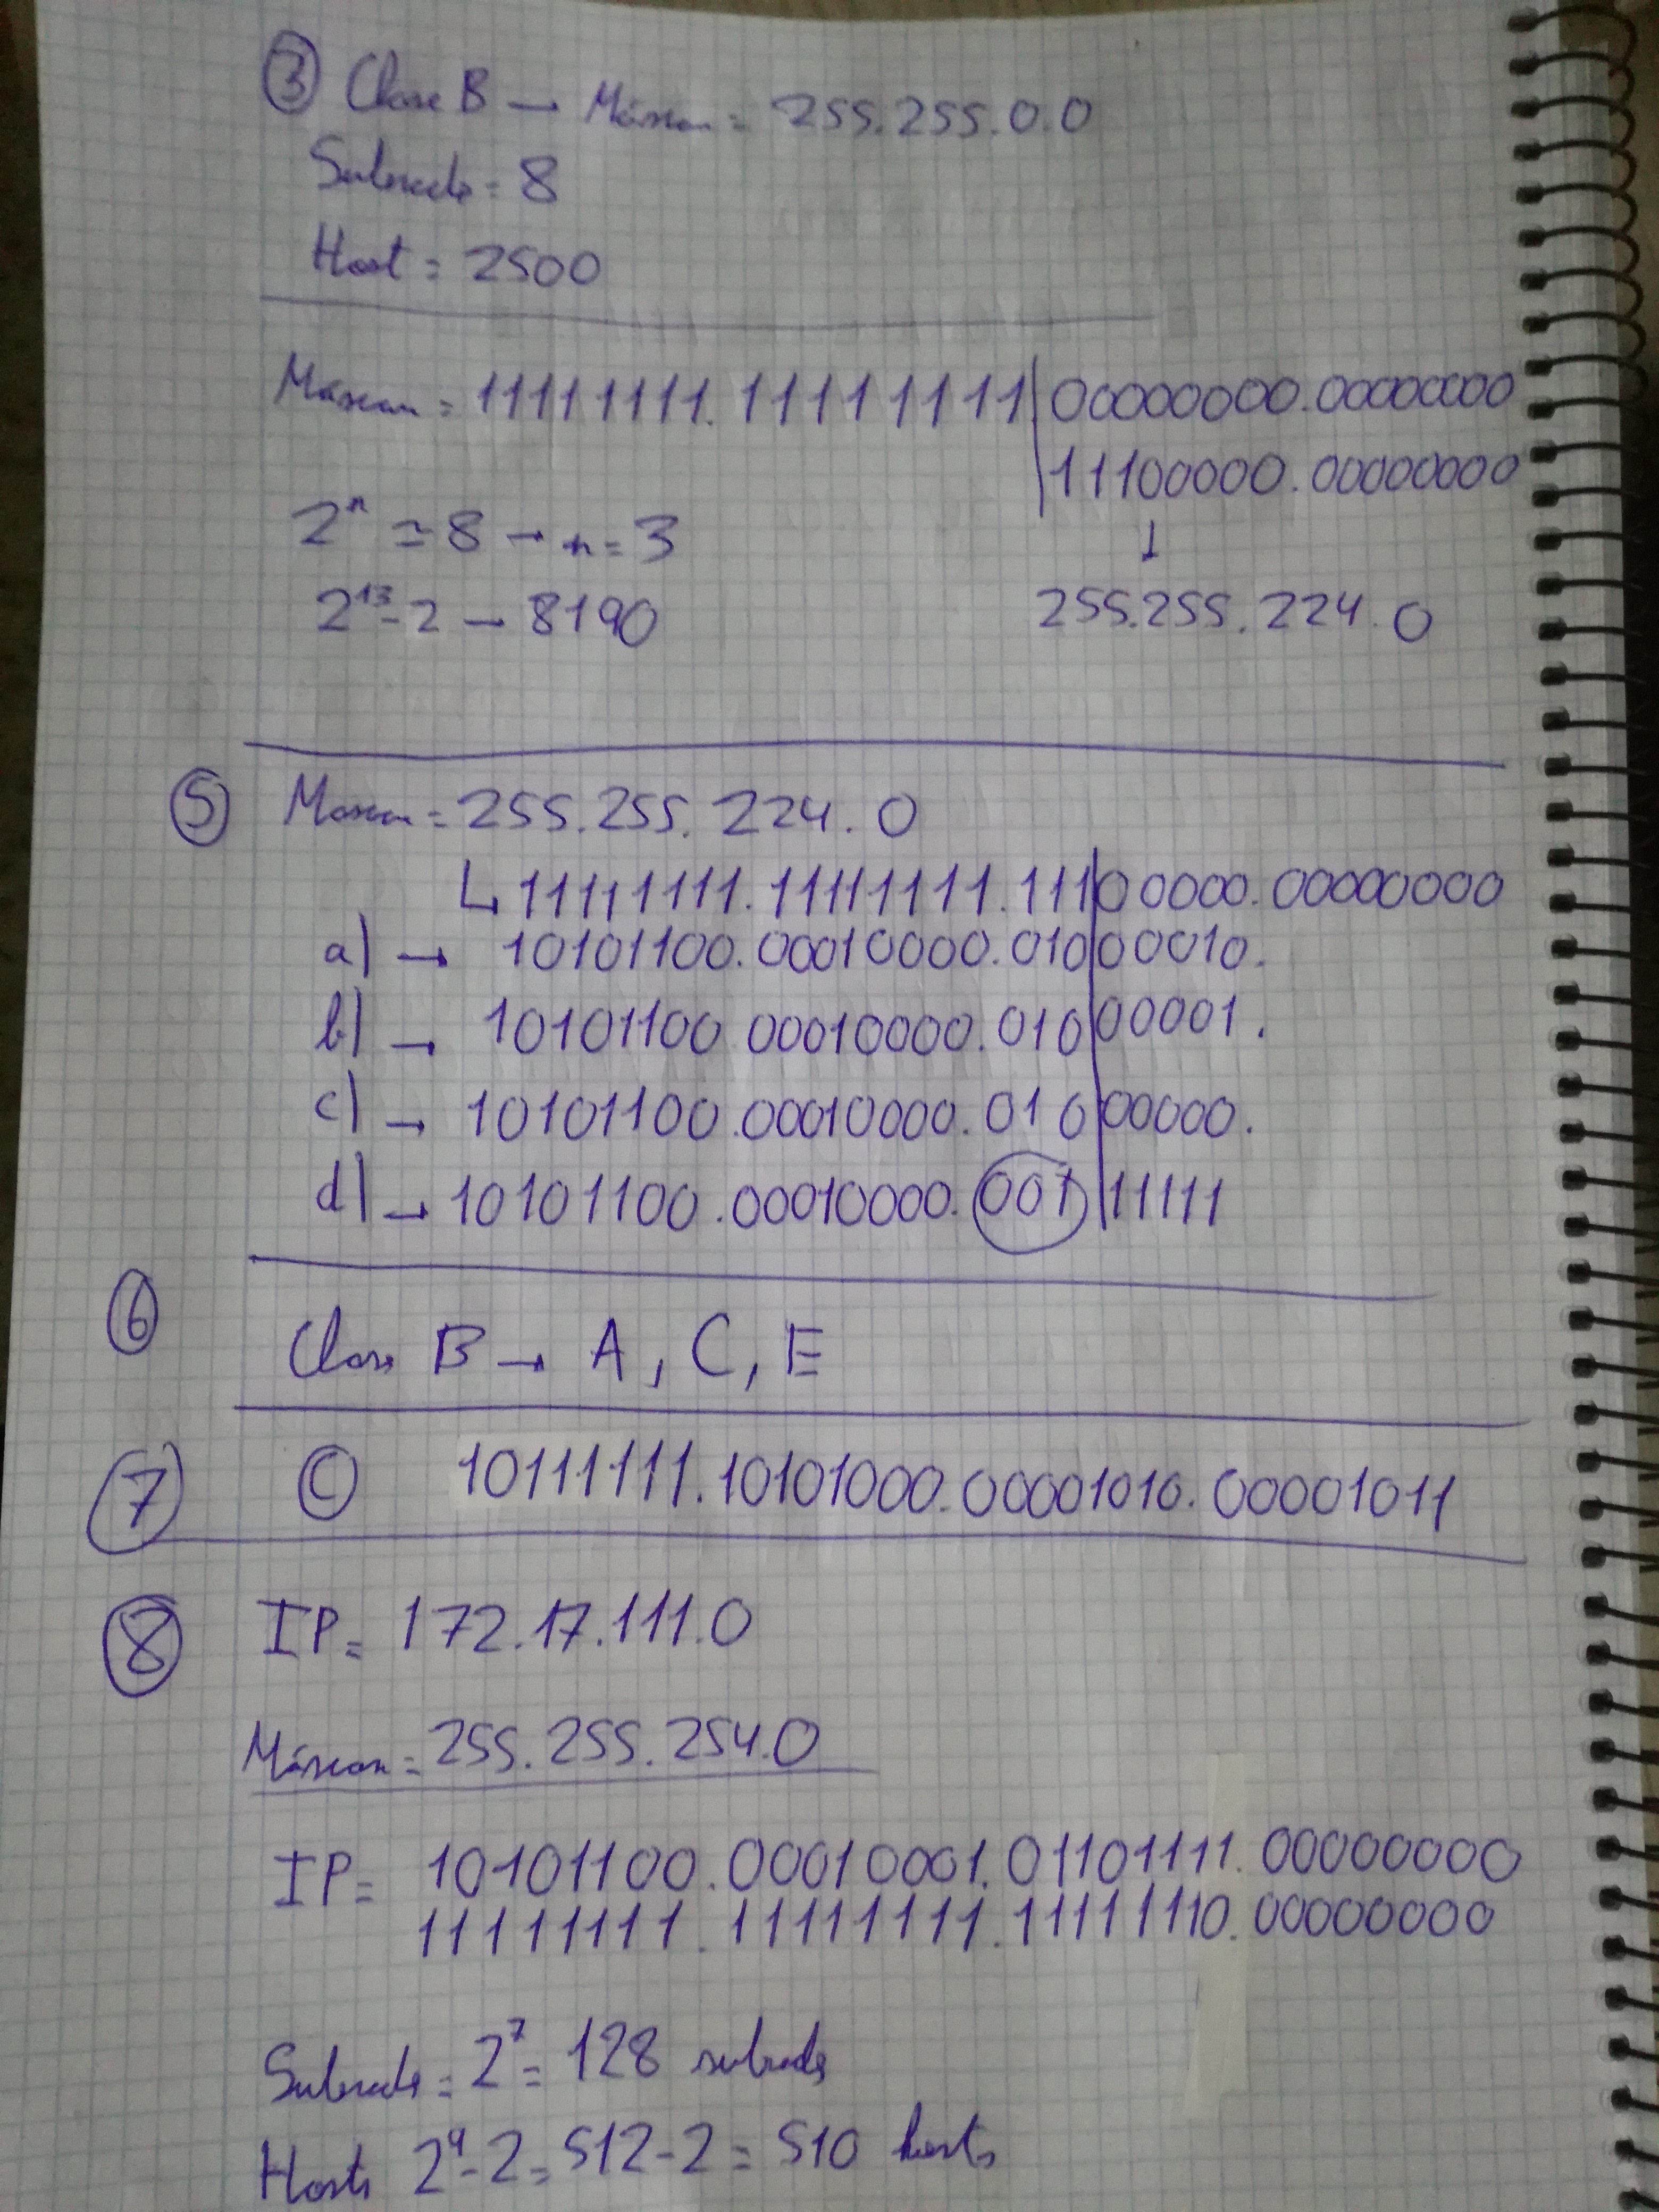 ③ Clase B → Máscara = 255.255.0.0
Subredes = 8
Host = 2500
Máscara = 11111111.11111111|00000000.00000000
|11100000.00000000
↓
2ⁿ ≃ 8 → n = 3
2¹³-2 → 8190
255.255.224.0
⑤ Máscara = 255.255.224.0
↳ 11111111.11111111.111|00000.00000000
a) → 10101100.00010000.010|00010.
b) → 10101100 00010000.010|00001.
c) → 10101100.00010000.010|00000.
d) → 10101100.00010000.001|11111
⑥
Clase B → A, C, E
⑦ © 10111111.10101000.00001010.00001011
⑧ IP = 172.17.111.0
Máscara = 255.255.254.0
IP = 10101100.00010001.01101111.00000000
11111111.11111111.11111110.00000000
Subredes = 2⁷ = 128 subredes
Hosts 2⁹-2 = 512-2 = 510 hosts